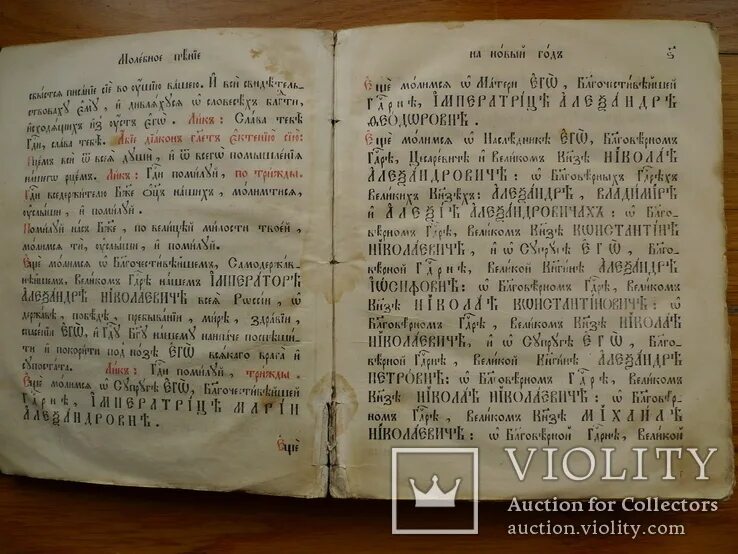 Молебное пѣнїе
сбыстся писанїе сїе во оушїю вашею. И вси свидѣтель-
ствоваху є҆му, и дивляхуся ѡ҆ словесѣхъ бл҃гти,
и҆сходящихъ и҆з оустъ є҆гѡ̀. Ликъ: Слава тебѣ
Гд҃и, слава тебѣ. Абїе дїаконъ гл҃етъ є҆ктенїю сїю:
Рцемъ вси ѿ всеѧ души, и ѿ всегѡ помышленїя
нашегѡ рцемъ. Ликъ: Гд҃и помилуй, по трижды.
Гд҃и вседержителю Бж҃е ѻ҆ц҃ъ нашихъ, молимтися,
оуслыши, и помилуй.
Помилуй насъ Бж҃е, по велицѣй милости твоей,
молимся ти, оуслыши, и помилуй.
Є҆щѐ молимся ѡ҆ Благочестивѣйшемъ, Самодержав-
нѣйшемъ, Великомъ Гд҃рѣ нашемъ ІМПЕРАТОРѢ
АЛЕѮАНДРѢ НІКОЛАЕВИЧѢ всея Рѡссїи, ѡ҆
державѣ, побѣдѣ, пребыванїи, мирѣ, здравїи,
спасенїи ЄГѠ̀, и Гд҃у Бг҃у нашему наипаче поспѣши-
ти и покорити под нозѣ ЄГѠ̀ всякаго врага и
супостата. Ликъ: Гд҃и помилуй, трижды.
Є҆щѐ молимся ѡ҆ Супругѣ ЄГѠ̀, Благочестивѣйшей
Гд҃рнѣ, ІМПЕРАТРІЦѢ МАРІИ
АЛЕѮАНДРОВНѢ.
Є҆щѐ
на новый годъ
ѕ҃
Є҆щѐ молимся ѡ҆ Матери ЄГѠ̀, Благочестивѣйшей
Гд҃рнѣ, ІМПЕРАТРІЦѢ АЛЕѮАНДРѢ
ѲЕОДОРОВНѢ.
Є҆щѐ молимся ѡ҆ Наслѣдникѣ ЄГѠ̀, Благовѣрномъ
Гд҃рѣ, Цесаревичѣ и Великомъ Кнѧзѣ НІКОЛАѢ
АЛЕѮАНДРОВИЧѢ: ѡ҆ Благовѣрныхъ Гд҃рѣхъ
Великихъ Кнѧзѣхъ: АЛЕѮАНДРѢ, ВЛАДИМІРѢ
и АЛЕѮІѢ АЛЕѮАНДРОВИЧАХЪ: ѡ҆ Благо-
вѣрномъ Гд҃рѣ, Великомъ Кнѧзѣ КОНСТАНТІНѢ
НІКОЛАЕВИЧѢ, и ѡ҆ Супругѣ ЄГѠ̀, Благо-
вѣрной Гд҃рнѣ, Великой Кнѧгинѣ АЛЕѮАНДРѢ
ІѠСИФОВНѢ: ѡ҆ Благовѣрномъ Гд҃рѣ, Великомъ
Кнѧзѣ НІКОЛАѢ КОНСТАНТІНОВИЧѢ: ѡ҆
Благовѣрномъ Гд҃рѣ, Великомъ Кнѧзѣ НІКОЛАѢ
НІКОЛАЕВИЧѢ, и ѡ҆ Супругѣ ЄГѠ̀, Благовѣр-
ной Гд҃рнѣ, Великой Кнѧгинѣ АЛЕѮАНДРѢ
ПЕТРОВНѢ: ѡ҆ Благовѣрномъ Гд҃рѣ, Великомъ
Кнѧзѣ НІКОЛАѢ НІКОЛАЕВИЧѢ: ѡ҆ Благовѣр-
номъ Гд҃рѣ, Великомъ Кнѧзѣ МІХАИЛѢ
НІКОЛАЕВИЧѢ: ѡ҆ Благовѣрной Гд҃рнѣ, Великой
VIOLITY
Auction for Collectors
auction.violity.com